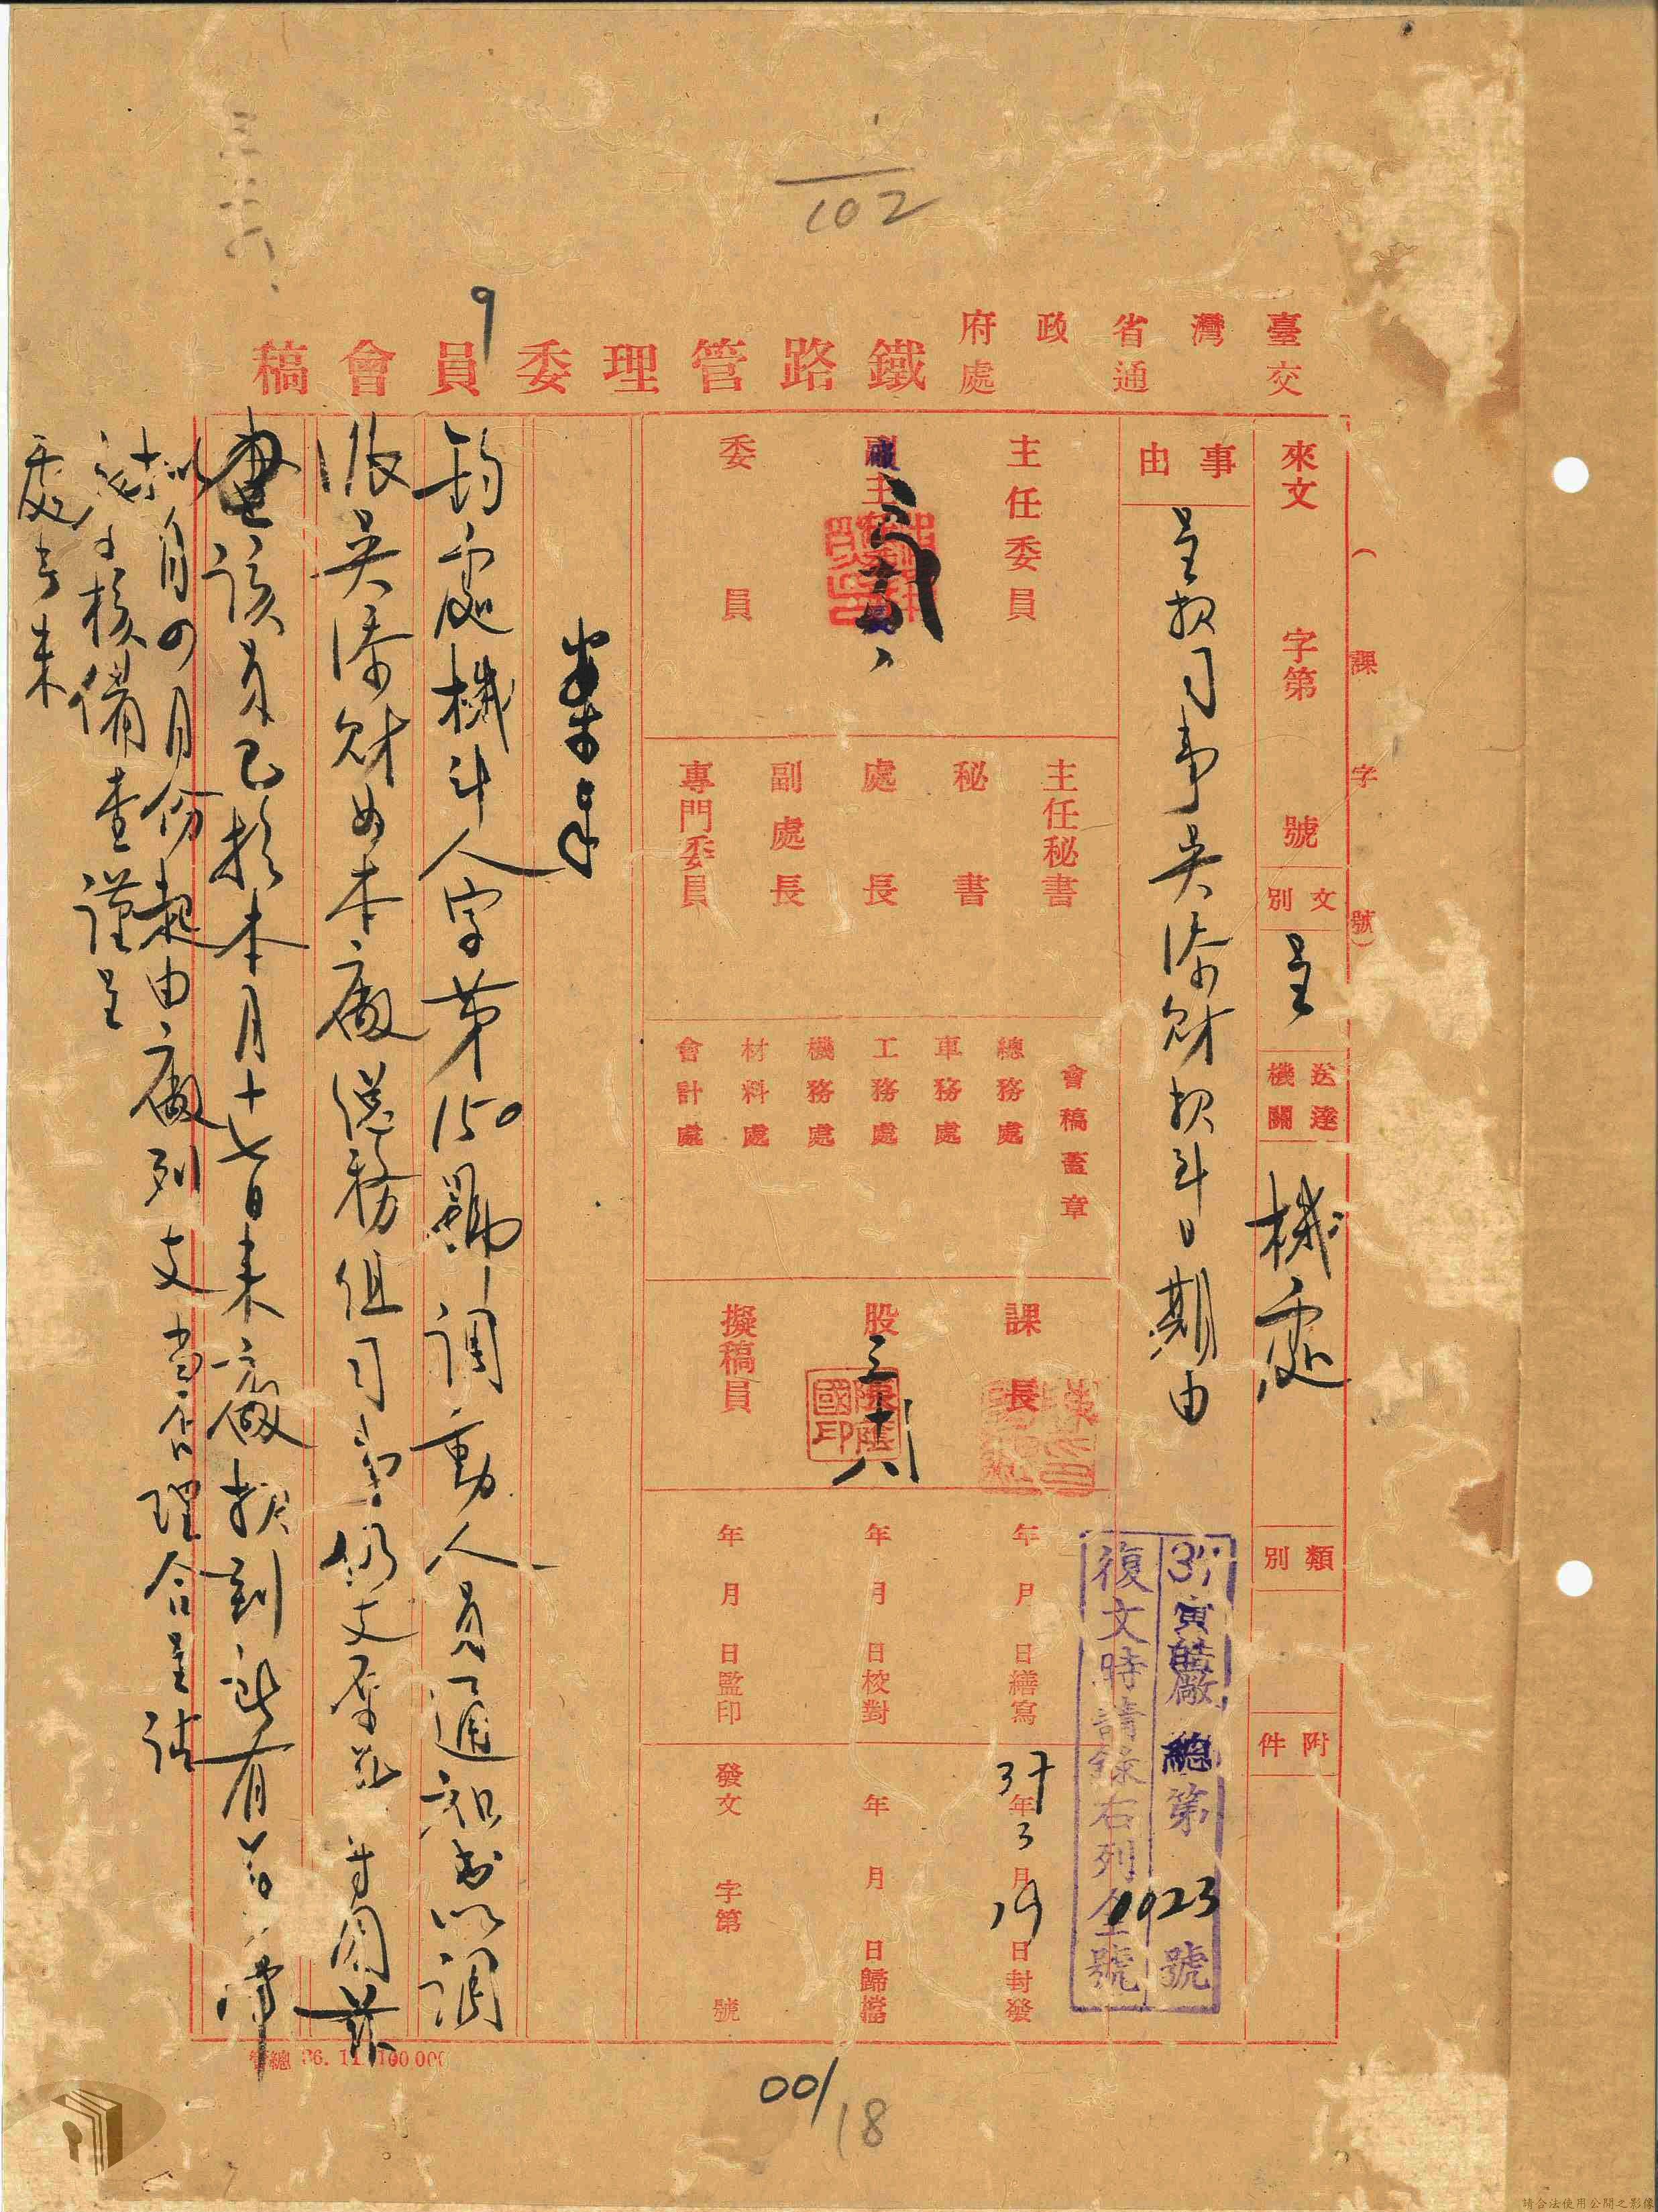 102
臺灣省政府
交通處
鐵路管理委員會稿
9
(課字號)
來文 字第 號
文別 呈
送達機關 機處
類別
附件
事由
呈報司事吳添財報到日期由
主任委員
副主任委員
委員
主任秘書
秘書
處長
副處長
專門委員
會稿蓋章
總務處
車務處
工務處
機務處
材料處
會計處
課長
股長
三 十八
陳蔭國印
擬稿員
年月日繕寫
年月日校對
年月日監印
37年3月19日封發
年月日歸檔
發文 字第 號
37寅皓廠總第0923號
復文時請錄右列全號
案奉
鈞處機 人字第150號調動人員通知書以調
派吳添財為本廠總務組司事仍支原薪 等因茲
查該員已於本月十七日來廠報到 有
月四月份起由廠列支當否理合呈請
核備查謹呈
處長朱
管總 36.11.100000
001
18
請合法使用公開之影像